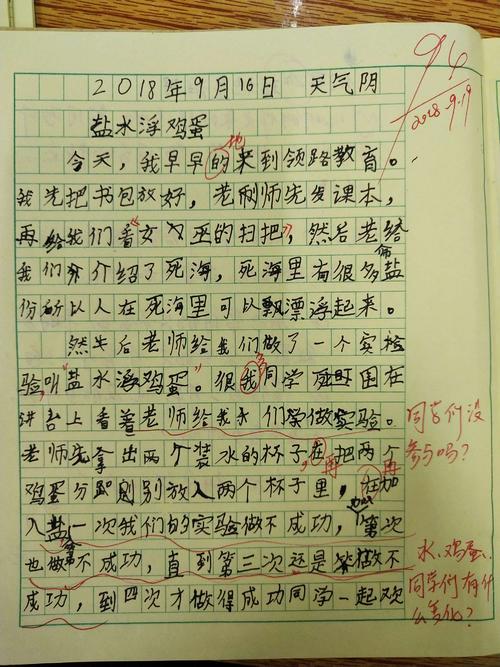 94
2018.9.19
2018年9月16日 天气阴
盐水浮鸡蛋
今天，我早早的地来到领路教育。
我先把书包放好，老师先发课本，
再给我们看“女巫的扫把”，然后老给
我们介绍了死海，死海里有很多盐
份所以人在死海里可以飘漂浮起来。
然后老师给我们做了一个实检
验叫“盐水浮鸡蛋”。很我多同学围在
讲台上看着老师给我们做实验。
老师先拿出两个装水的杯子，在再把两个
鸡蛋分别放入两个杯子里，在再加
入盐一次我们的实验做不成功，第次
也做不成功，直到第三次还是做不
成功，到四次才做得成功同学一起欢
同学们没
参与吗？
水、鸡蛋、
同学们有什
么变化？